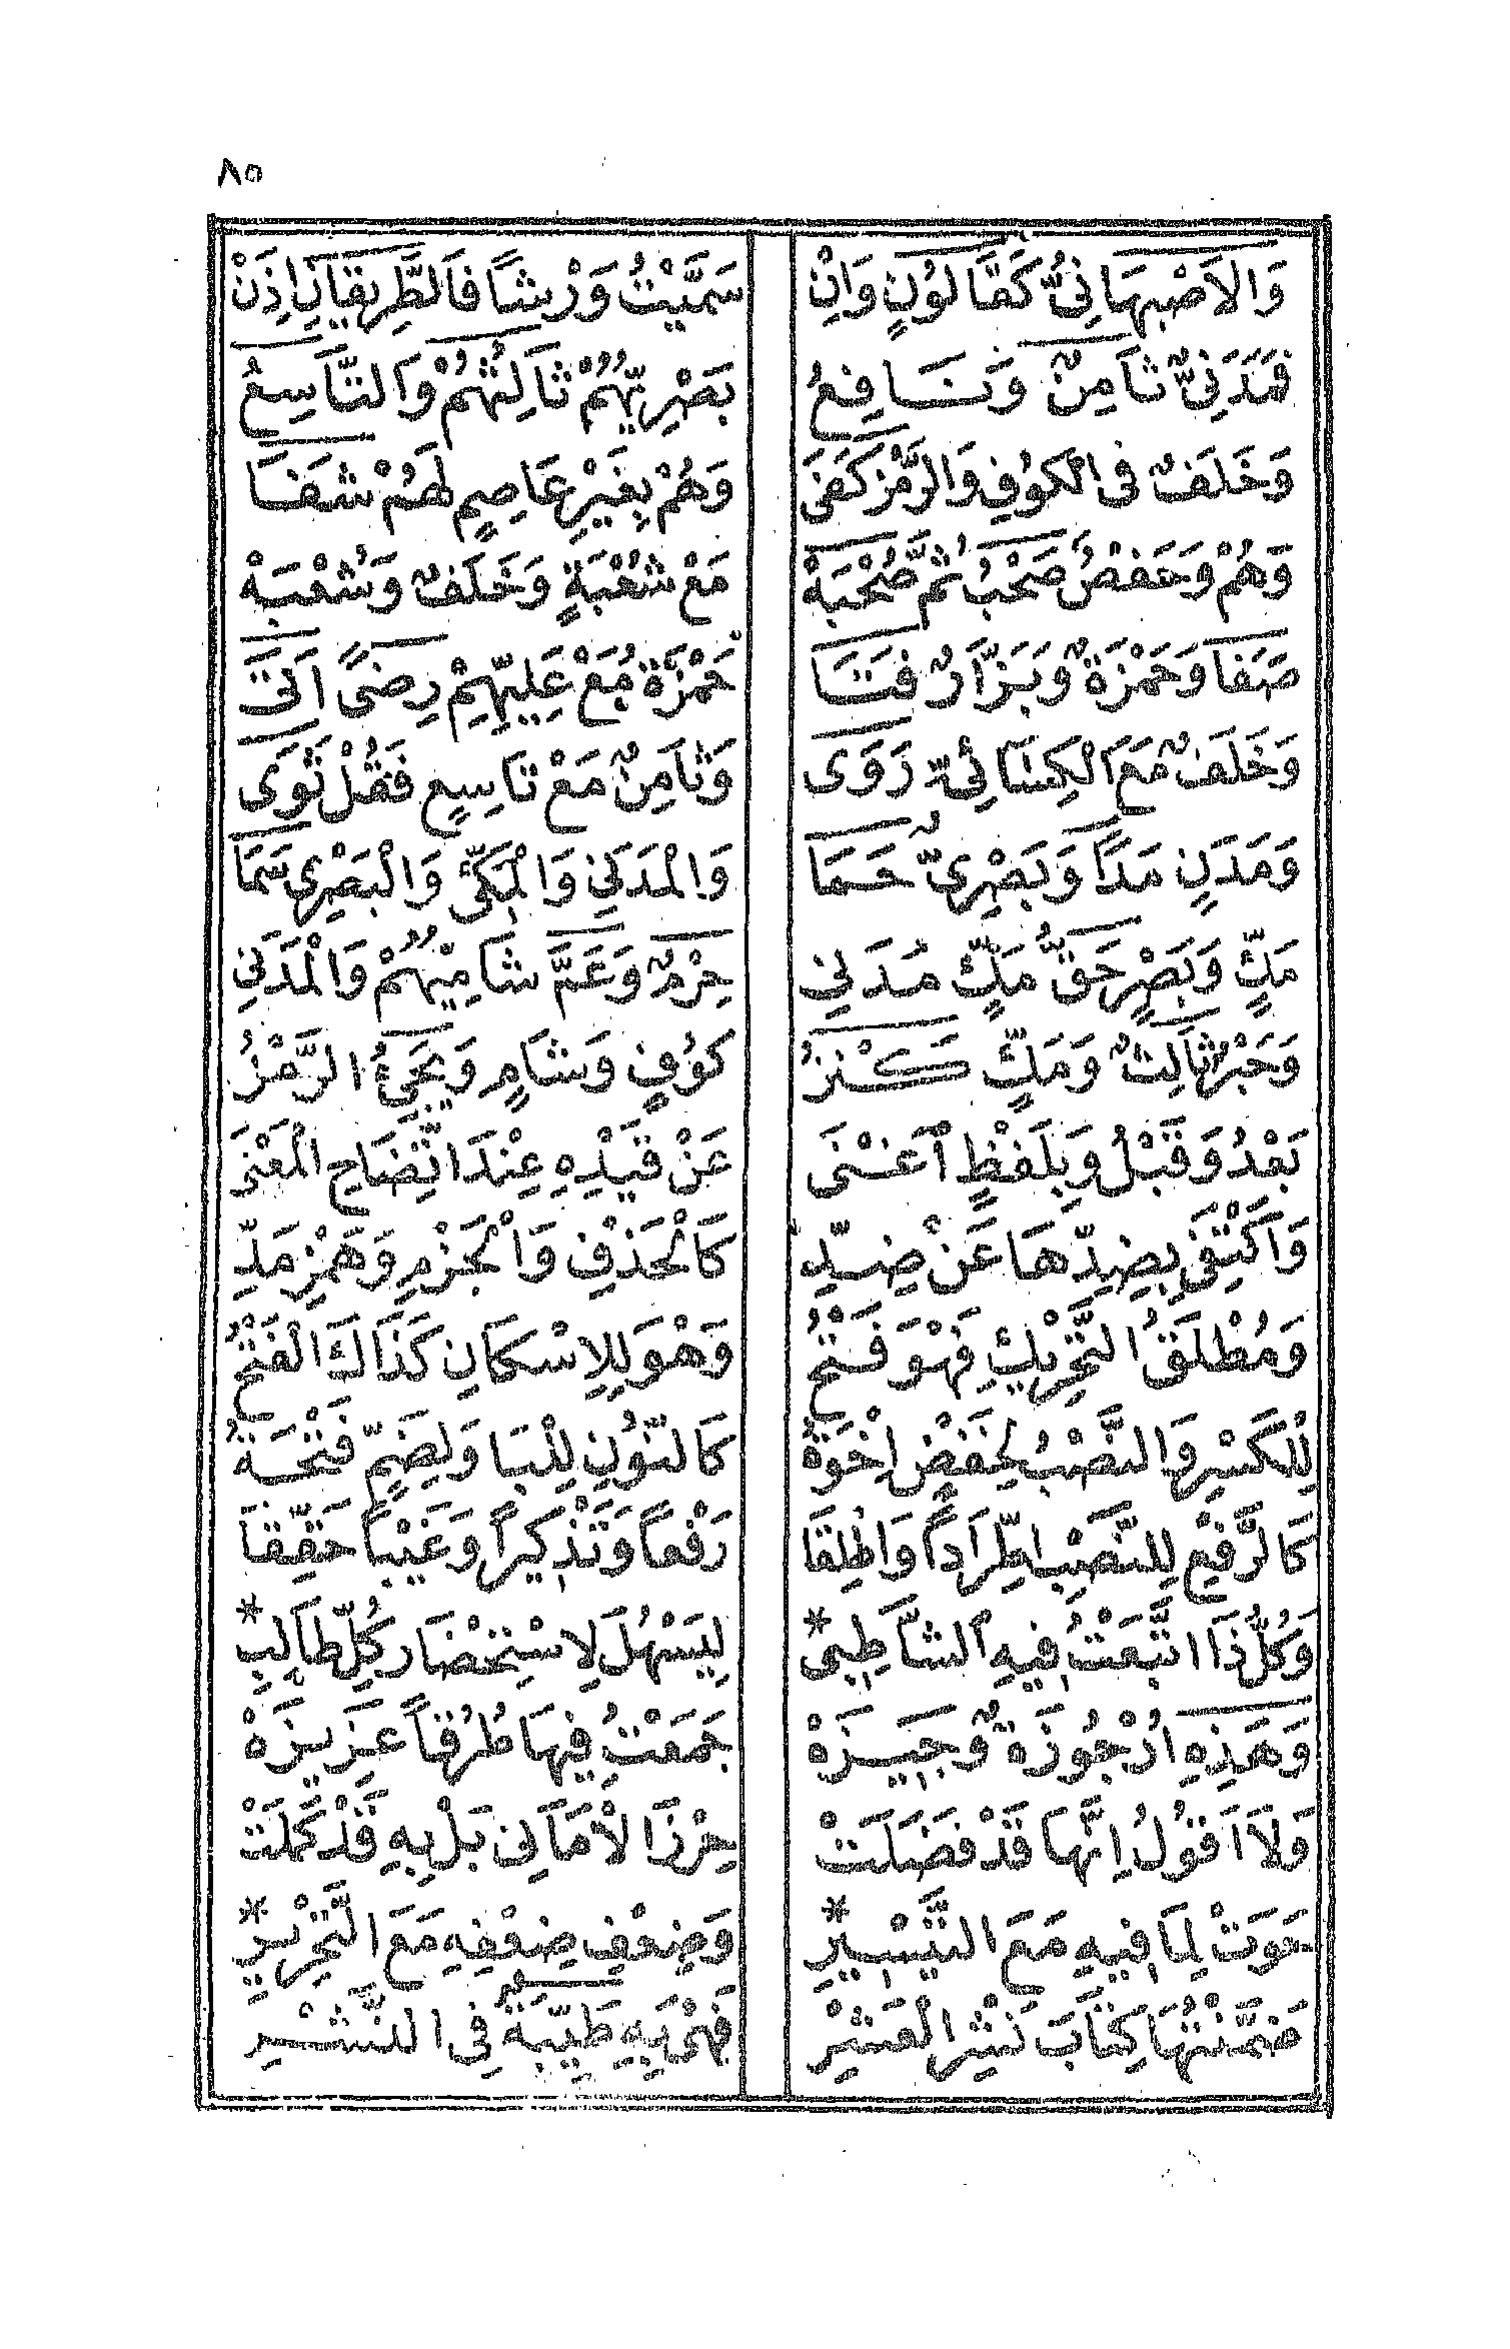 ٨٥
وَالاَصْبَهَانِىُّ كَقَالُوْنٍ وَاِنْ سَمَّيْتُ وَرْشًا فَالطَّرِيْقَانِ اِذَنْ
فَمَدَنِىٌّ ثَامِنٌ وَنَافِعُ بَصْرِيُّهُمْ ثَالِثُهُمْ وَالتَّاسِعُ
وَخَلَفٌ فِى الْكُوْفِ وَالرَّمْزُ كَفَى وَهُمْ بِغَيْرِ عَاصِمٍ لَهُمْ شَفَا
وَهُمْ وَحَفْصٌ صَحْبُ ثُمَّ صُحْبَةْ مَعْ شُعْبَةٍ وَخَلَفٌ وَشُعْبَةْ
صَفَا وَحَمْزَةٌ وَبَزَّارٌ فَتَا حَمْزَةُ مَعْ عَلِيِّهِمْ رِضًى اَتَى
وَخَلَفٌ مَعَ الْكِسَائِىِّ رَوَى وَثَامِنٌ مَعْ تَاسِعٍ فَقُلْ ثَوَى
وَمَدَنٍ مَدًا وَبَصْرِىٌّ حَمَا وَالْمَدَنِى وَالْمَكِّىْ وَالْبَصْرِى سَمَا
مَكٍّ وَبَصْرٍ حَقٌّ مَكٍّ مَدَنِى حِرْمٌ وَعَمَّ شَامِيْهُمْ وَالْمَدَنِى
وَحَبْرُ ثَالِثٌ وَمَكٍّ كَنْزُ كُوْفٍ وَشَامٍ وَيَجِىْءُ الرَّمْزُ
بَعْدُ وَقَبْلُ وَبِلَفْظٍ اَغْنَى عَنْ قَيْدِهِ عِنْدَ اتِّضَاحِ الْمَعْنَى
وَاَكْتَفِىْ بِضِدِّهَا عَنْ ضِدِّ كَالْحَذْفِ وَالْجَزْمِ وَهَمْزِ مَدِّ
وَمُطْلَقُ التَّحْرِيْكِ فَهْوَ فَتْحُ وَهْوَ لِلِاسْكَانِ كَذَاكَ الْفَتْحُ
لِلْكَسْرِ وَالنَّصْبُ لِخَفْضٍ اِخْوَةُ كَالنُّوْنِ لِلْيَا وَلِضَمٍّ فَتْحَةُ
كَالرَّفْعِ لِلنَّصْبِ اطِّرَادًا وَاطْلِقَا رَفْعًا وَتَذْكِيْرًا وَغَيْبًا حَقِّقَا
وَكُلُّ ذَا اتَّبَعْتُ فِيْهِ الشَّاطِبِى * لِيَسْهُلَ لِاسْتِحْضَارُ كُلِّ طَالِبِ *
وَهَذِهِ اُرْجُوزَةٌ وَجِيْزَةْ جَمَعْتُ فِيْهَا طُرُقًا عَزِيْزَةْ
وَلَا اَقُوْلُ اِنَّهَا قَدْ فَضَلَتْ حِرْزَ الْأَمَانِى بَلْ بِهِ قَدْ كَمُلَتْ
حَوَتْ لِمَا فِيْهِ مَعَ التَّيْسِيْرِ * وَضِعْفِ ضِعْفِهِ مَعَ التَّحْرِيْرِ *
ضَمَّنْتُهَا كِتَابَ نَشْرِ الْعَشْرِ فَهْىَ بِهِ طَيِّبَةٌ فِى النَّشْرِ